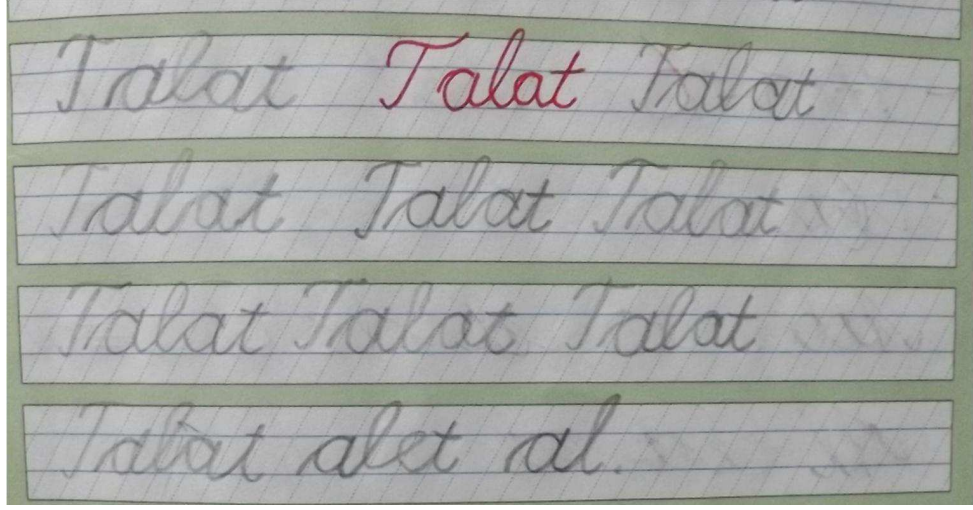 Talat Talat Talat
Talat Talat Talat
Talat Talat Talat
Talat alet al.